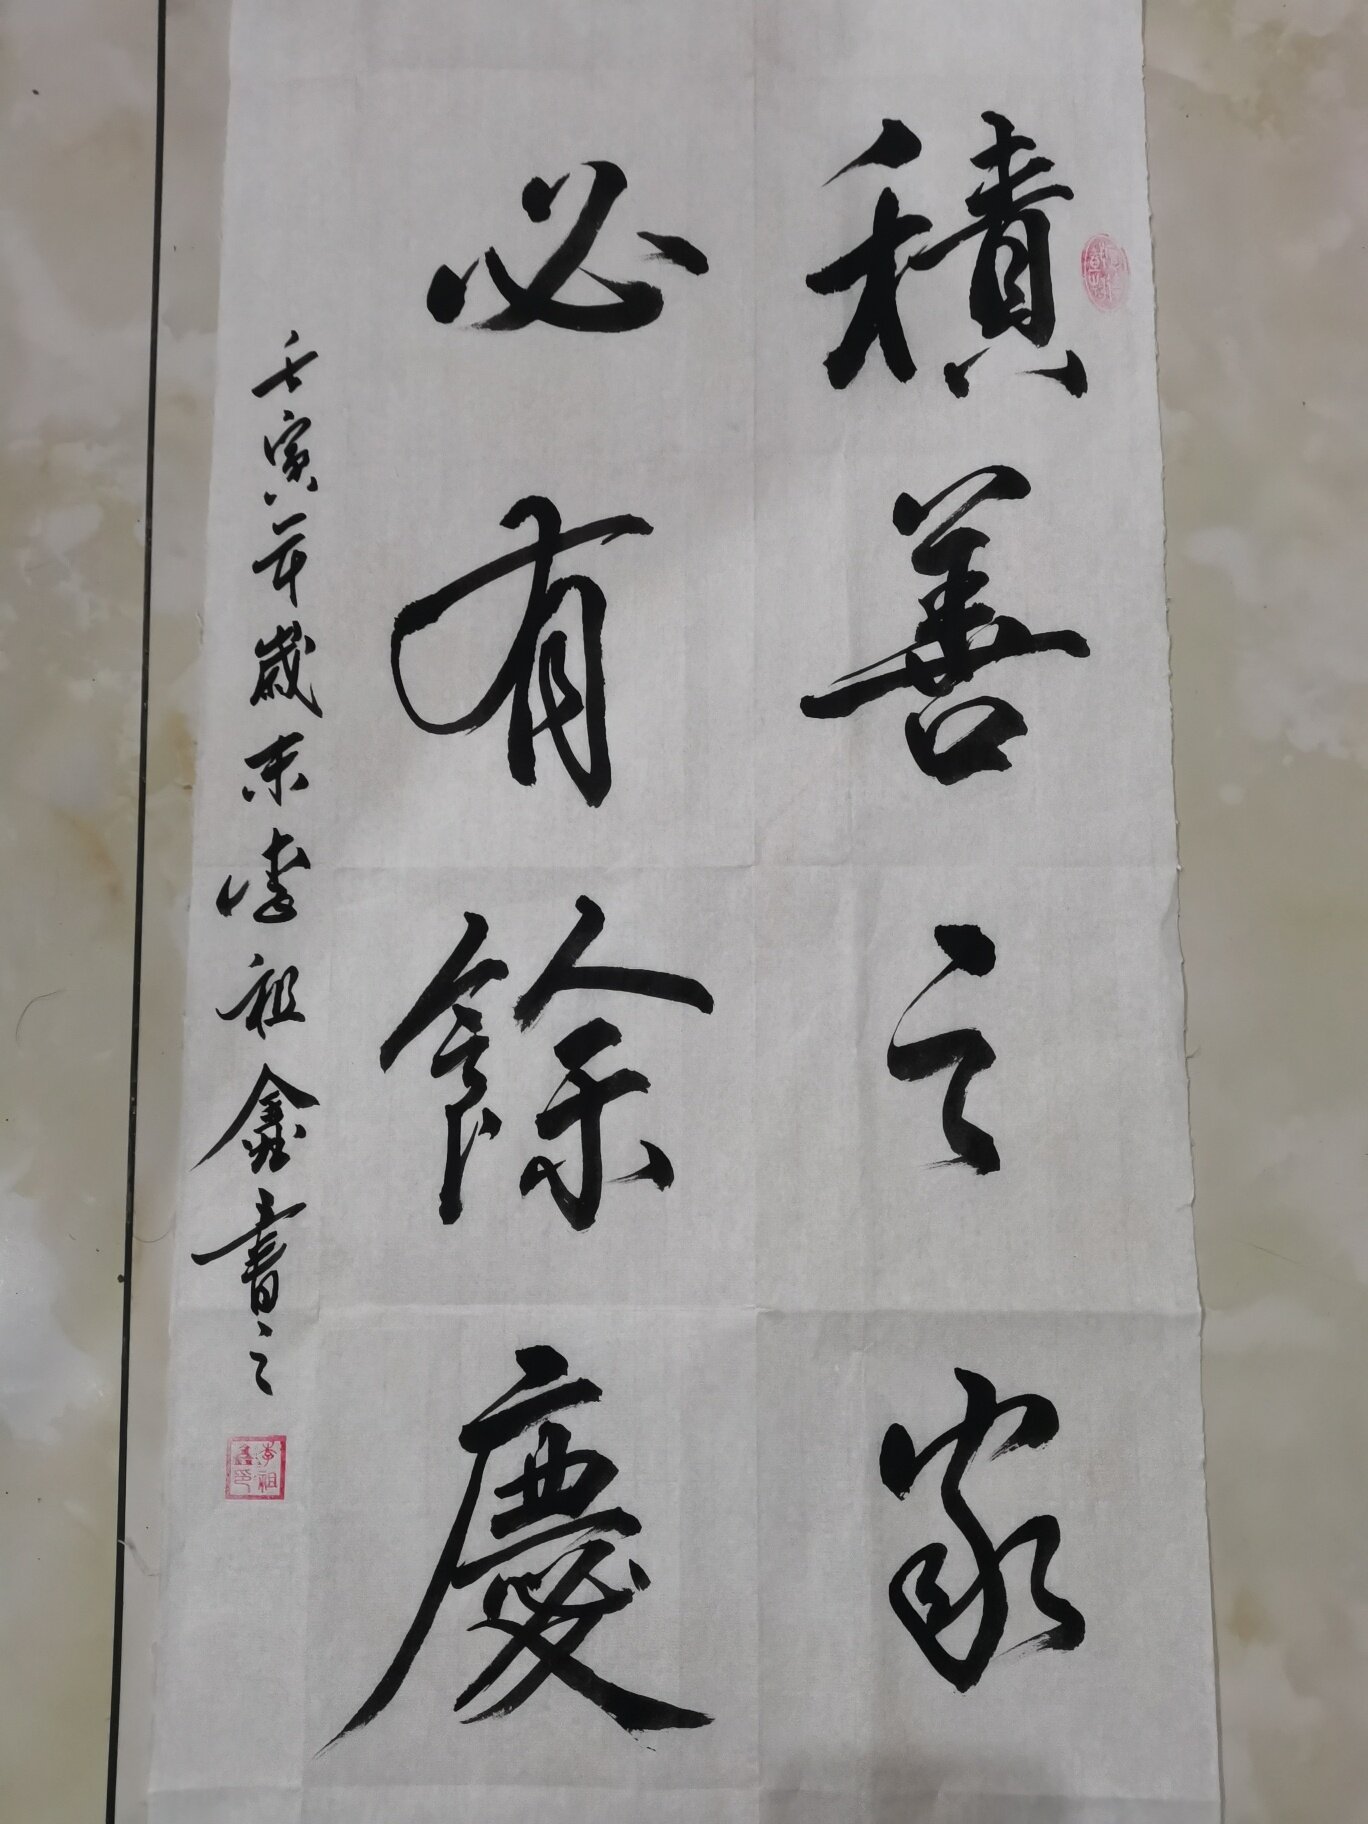 積善之家
必有餘慶
壬寅年歲末李祖鑫書之
李祖鑫印